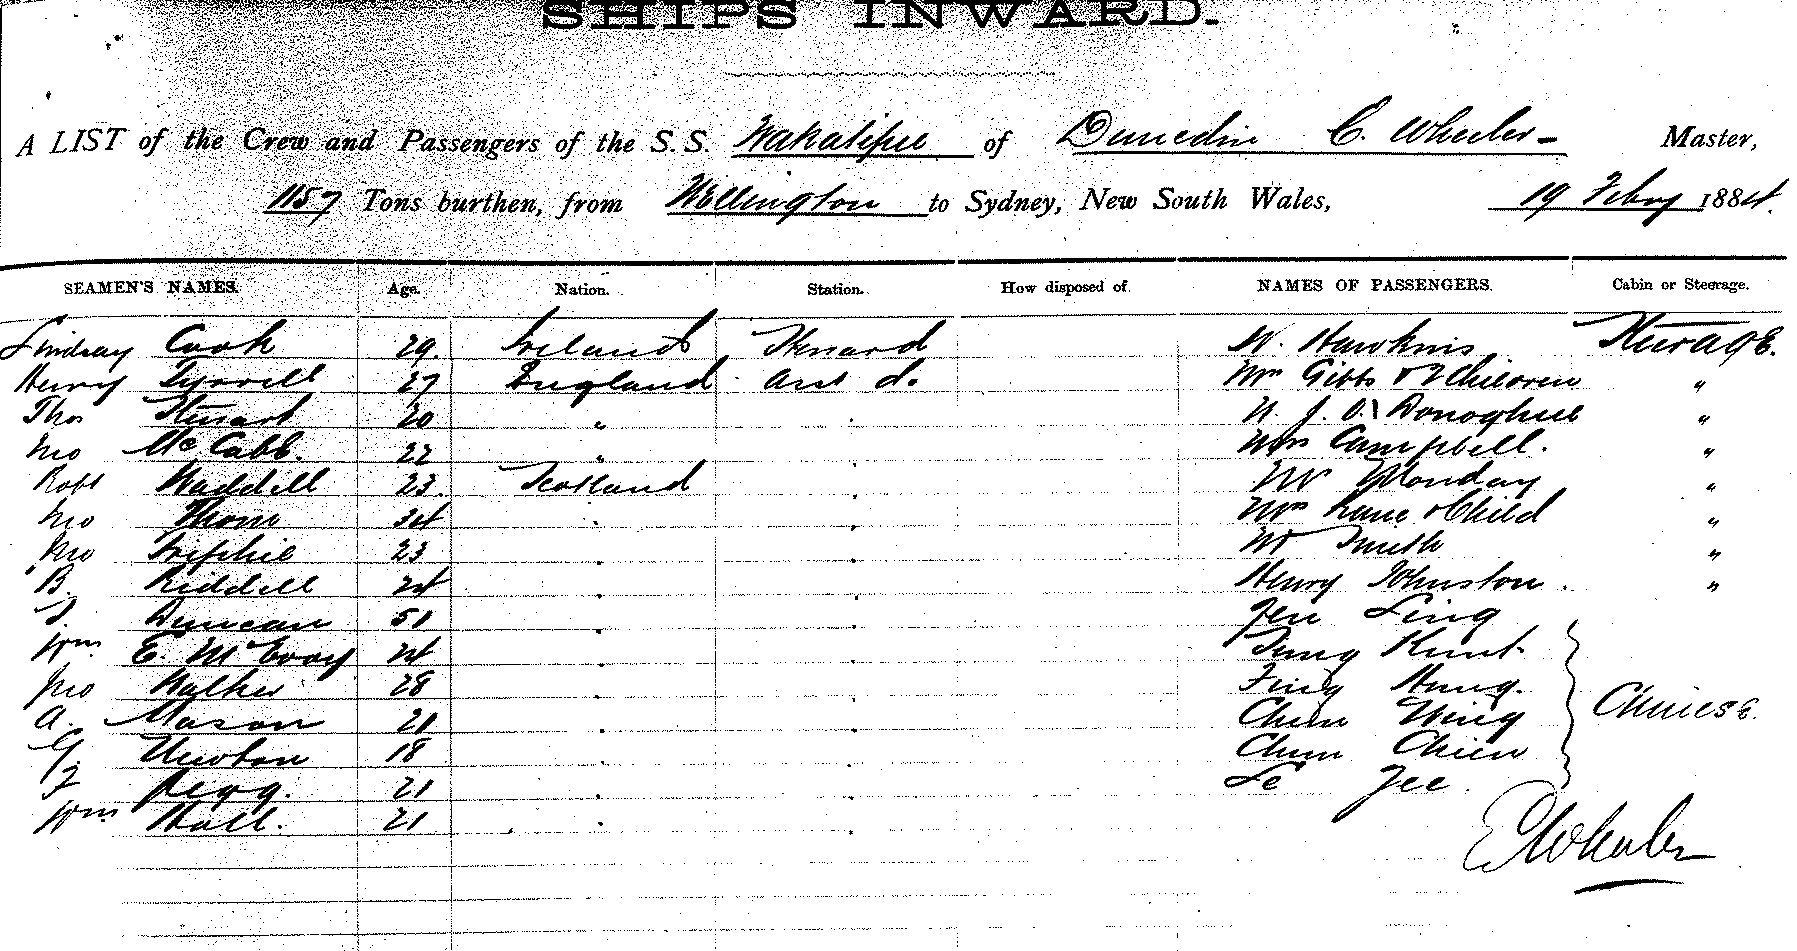 SHIPS INWARD.
A LIST of the Crew and Passengers of the S.S. Wakatipu of Dunedin C. Wheeler - Master,
1157 Tons burthen, from Wellington to Sydney, New South Wales, 19 Feby 1884.
SEAMEN'S NAMES. Age. Nation. Station. How disposed of. NAMES OF PASSENGERS. Cabin or Steerage.
Lindsay Cook 29. Ireland Steward W. Hawkins Steerage.
Henry Tyrrell 27 England Asst do. Mrs Gibbs & 2 Children "
Thos Stewart 20 " . J. O'Donoghue "
Jno McCabb. 22 " . Mrs Campbell. "
Robt Waddell 23. Scotland . Mr Monday "
Jno Thom 34 . . Mrs Lane & Child "
Jno 23 . . Mr Smith "
B. Riddell 24 . . Henry Johnston . "
Duncan 51 . . Jen Sing
Wm. E. McEvoy 24 . . Tung
Jno Walker 28 . . Hung.
A. Mason 21 . . Chun Wing Chinese.
G. Newton 18 . . Chum Chien
Pegg. 21 . . Le Jee.
Wm Hall. 21 . . .
C Wheeler